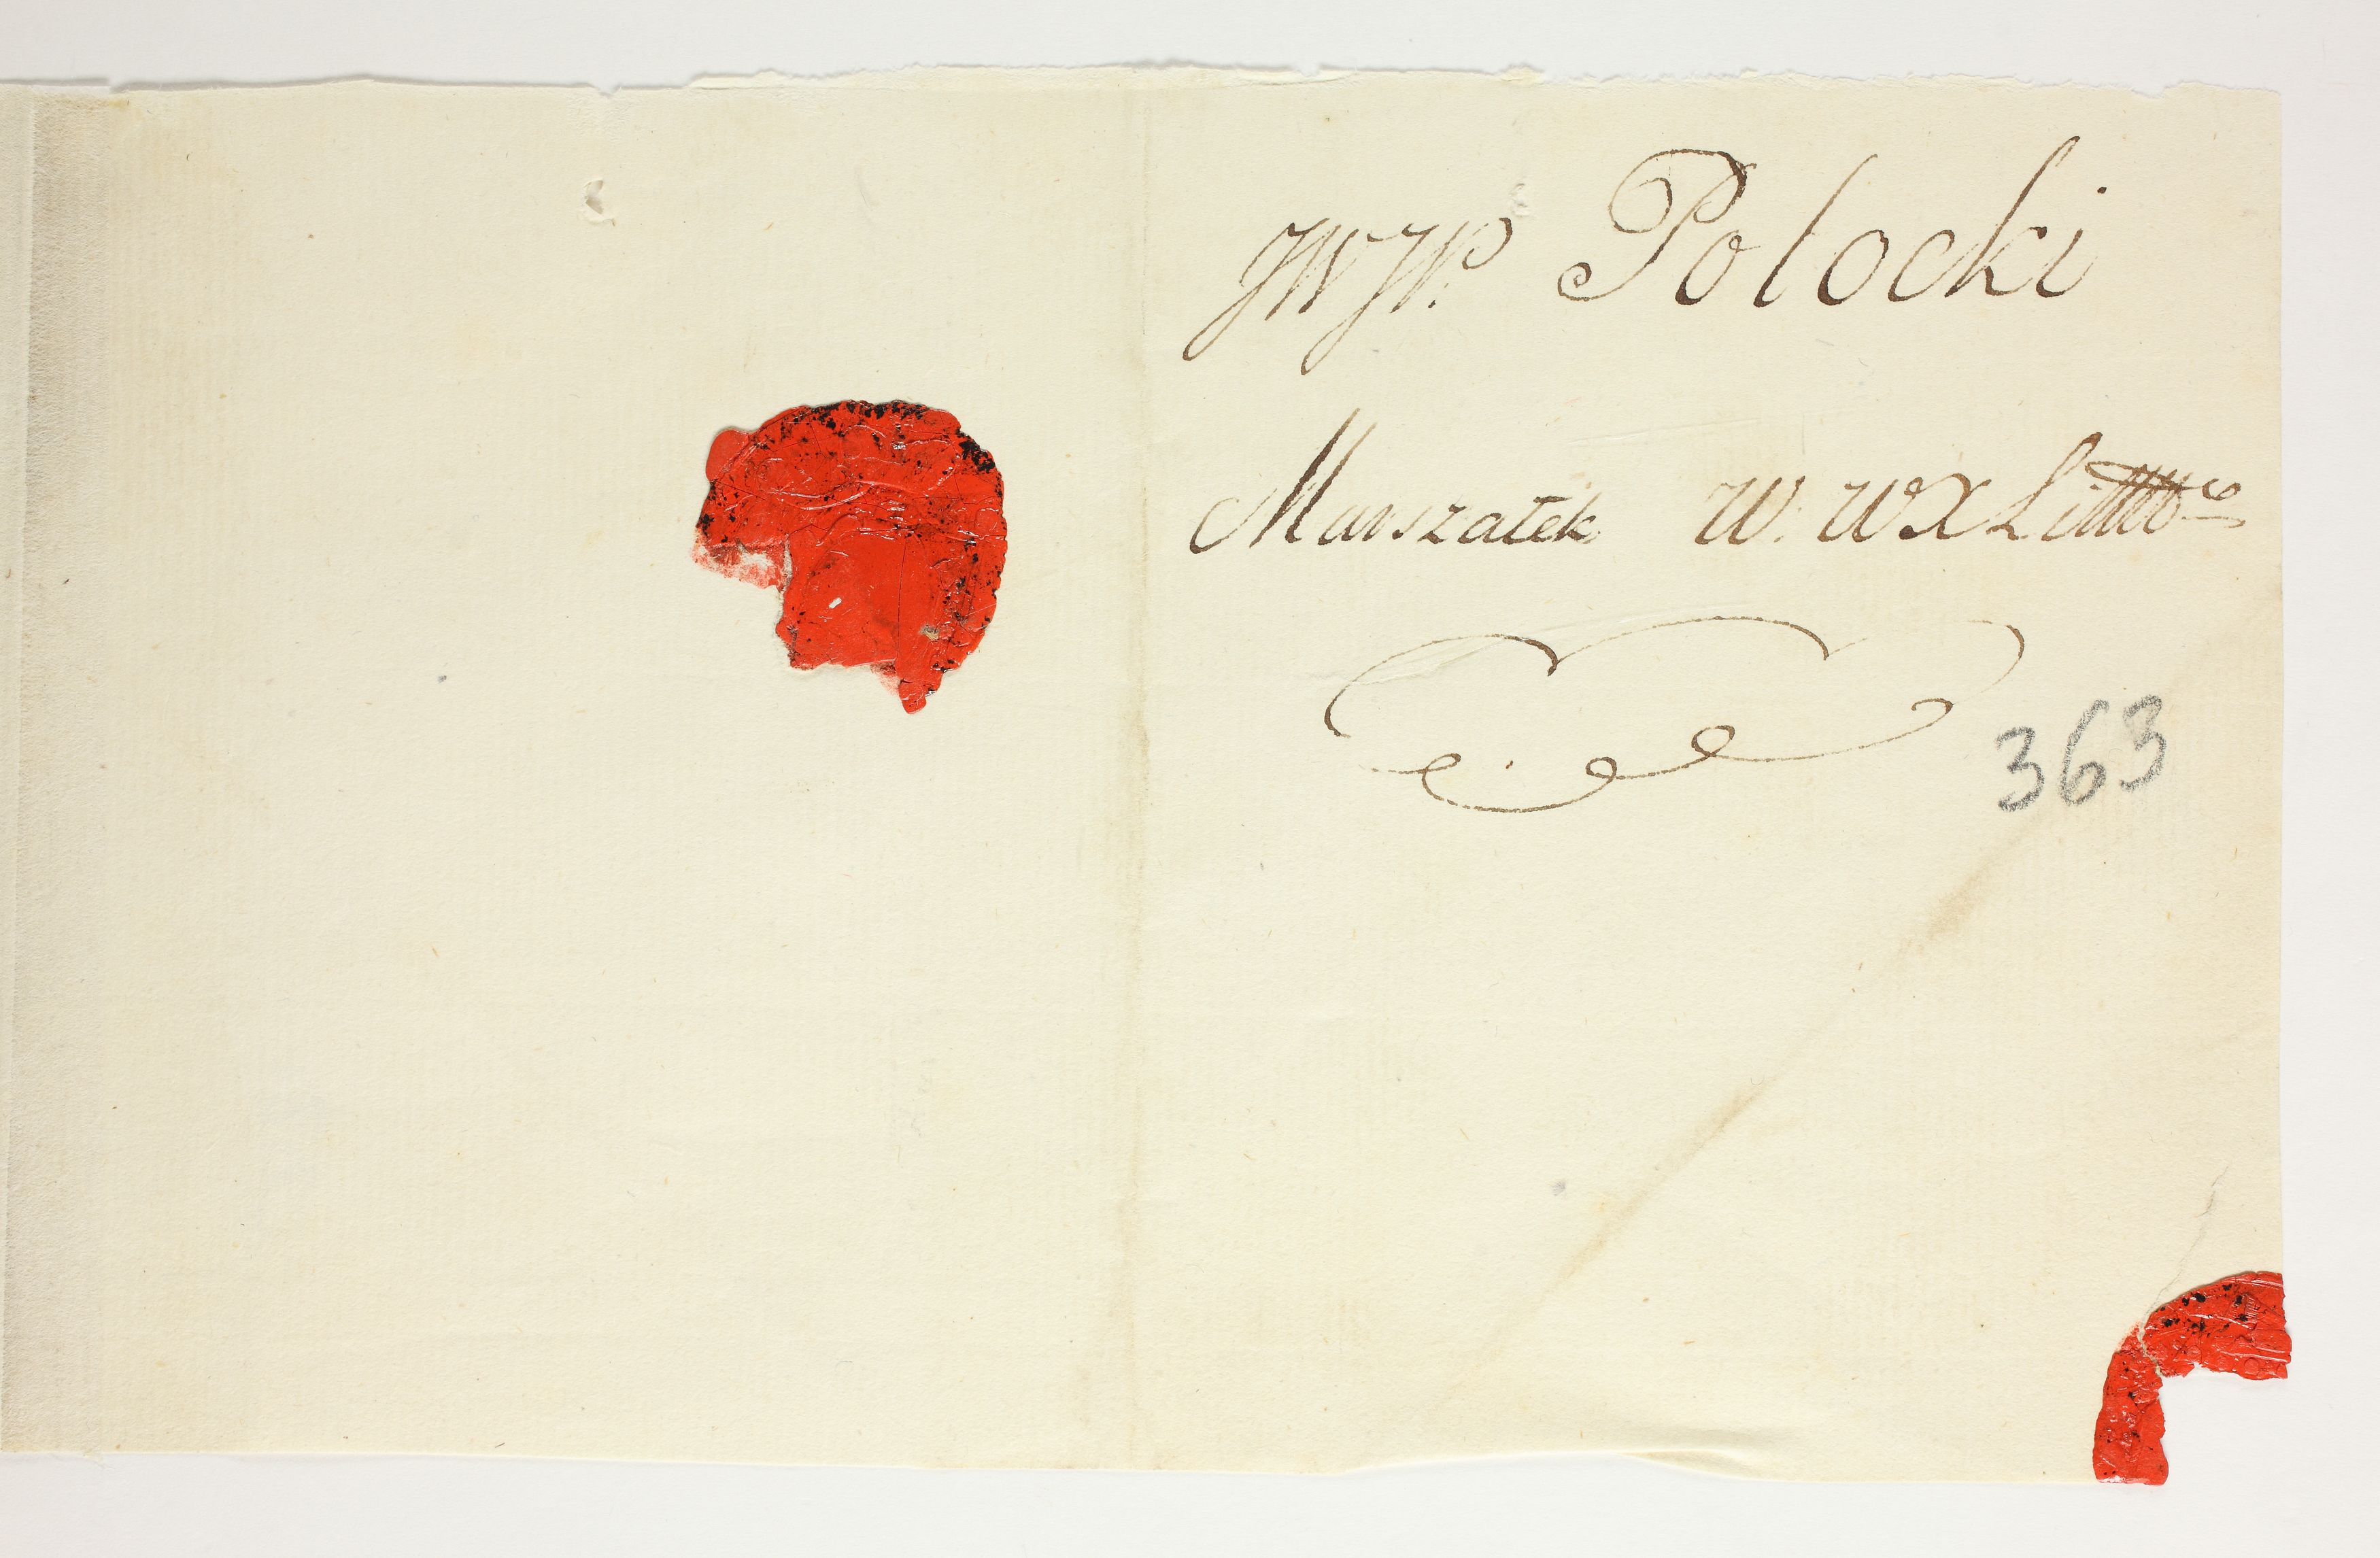 JWJP. Polocki
Marszałek W. WXLittwo
363